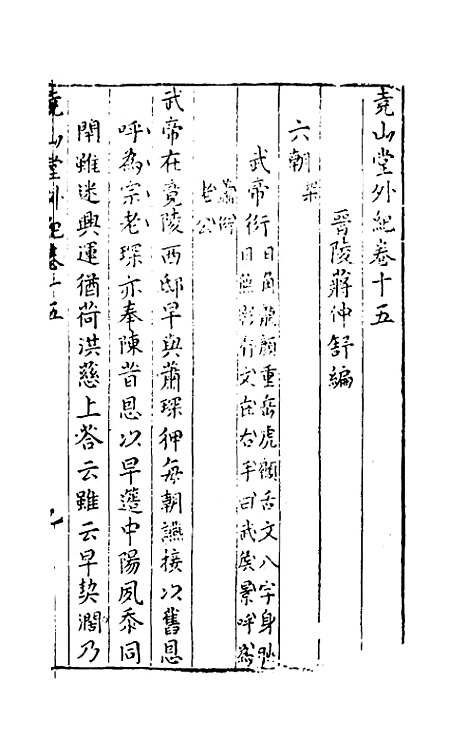 堯山堂外紀卷十五
晉陵蔣仲舒編
六朝 梁
武帝衍 日角龍顏重岳虎顧舌文八字身
日無影有文在右手曰武侯景呼爲
蕭衍
老公
武帝在竟陵西邸早與蕭琛狎每朝讌接以舊恩
呼爲宗老琛亦奉陳昔恩以早簉中陽夙忝同
閈雖迷興運猶荷洪慈上答云雖云早契濶乃
堯山堂外紀卷十五